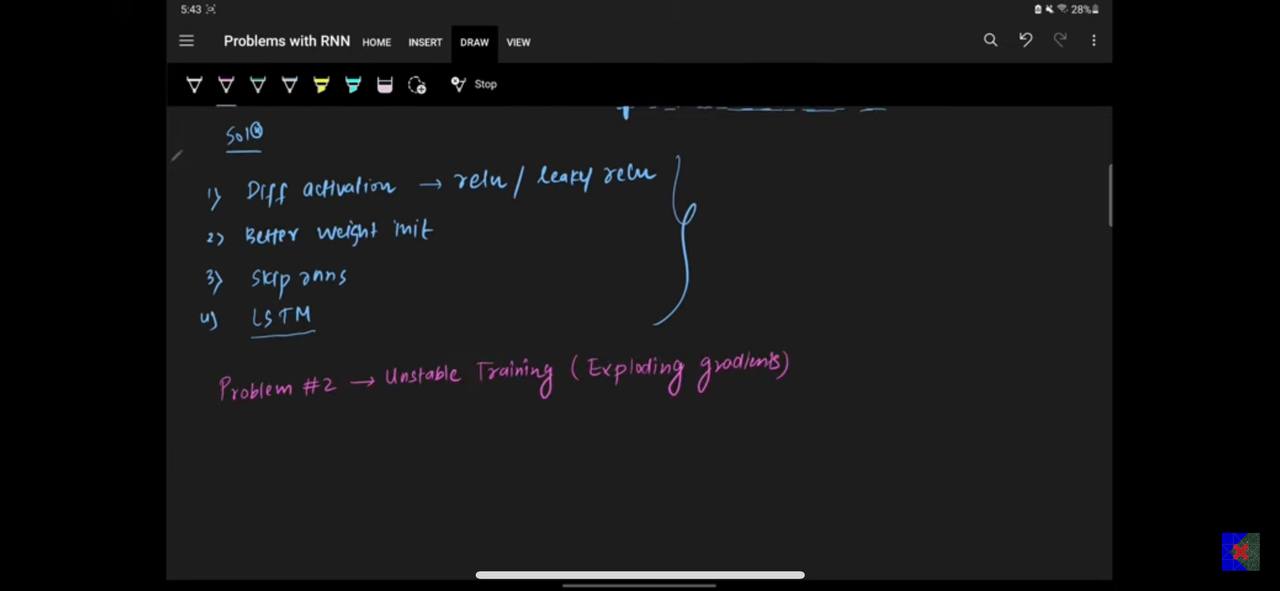 5:43 28%
Problems with RNN HOME INSERT DRAW VIEW
Stop
1) Diff activation → relu / leaky relu
2) Better weight init
3) Skip rnns
4) LSTM
Problem #2 → Unstable Training (Exploding gradients)